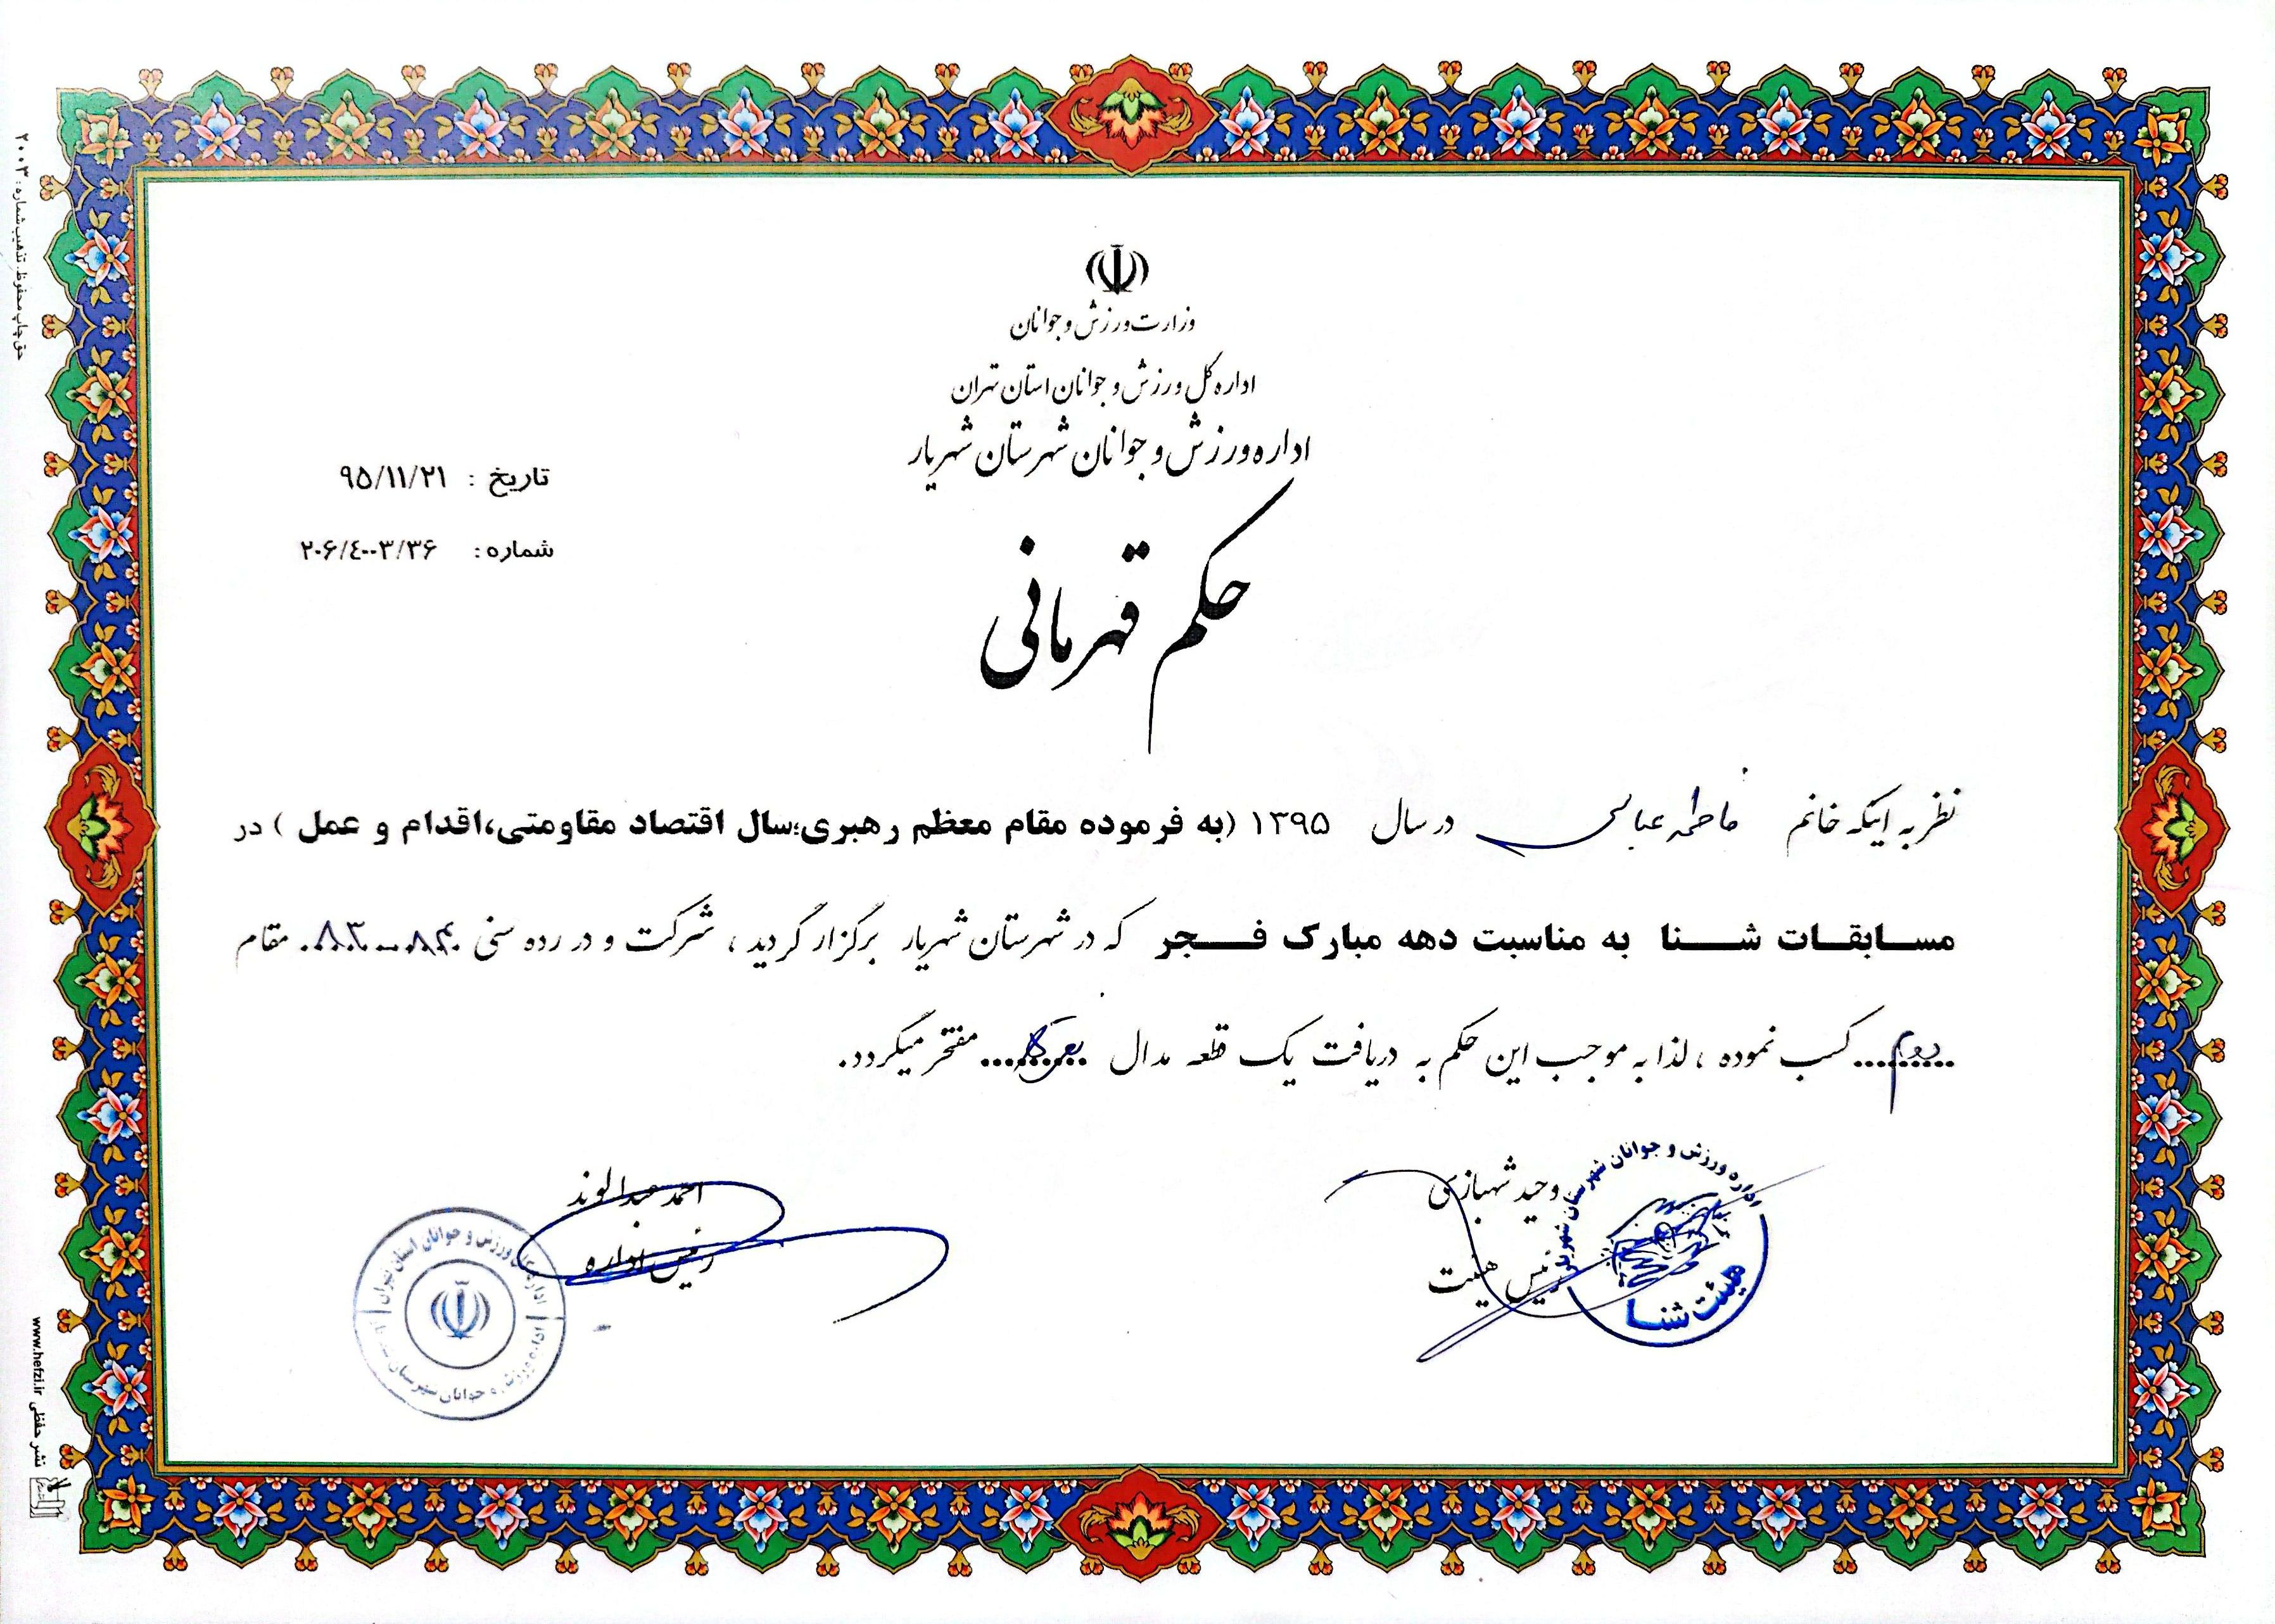 وزارت ورزش و جوانان
اداره کل ورزش و جوانان استان تهران
اداره ورزش و جوانان شهرستان شهریار
تاریخ : ۹۵/۱۱/۲۱
شماره : ۲۰۶/۴۰۰۳/۳۶
حکم قهرمانی
نظر به اینکه خانم فاطمه عباسی در سال ۱۳۹۵ (به فرموده مقام معظم رهبری؛سال اقتصاد مقاومتی،اقدام و عمل ) در
مسابقات شنا به مناسبت دهه مبارک فجر که در شهرستان شهریار برگزار گردید ، شرکت و در رده سنی ۸۴-۸۳ مقام
دوم کسب نموده ، لذا به موجب این حکم به دریافت یک قطعه مدال نقره مفتخر میگردد.
وحید شهبازی
رئیس هیئت
احمد عبدالوند
رئیس اداره
اداره ورزش و جوانان شهرستان شهریار
هیئت شنا
اداره کل ورزش و جوانان استان تهران
اداره ورزش و جوانان شهرستان
حق چاپ محفوظ. تذهیب شماره: ۲۰۰۳
نشر حفظی www.hefzi.ir